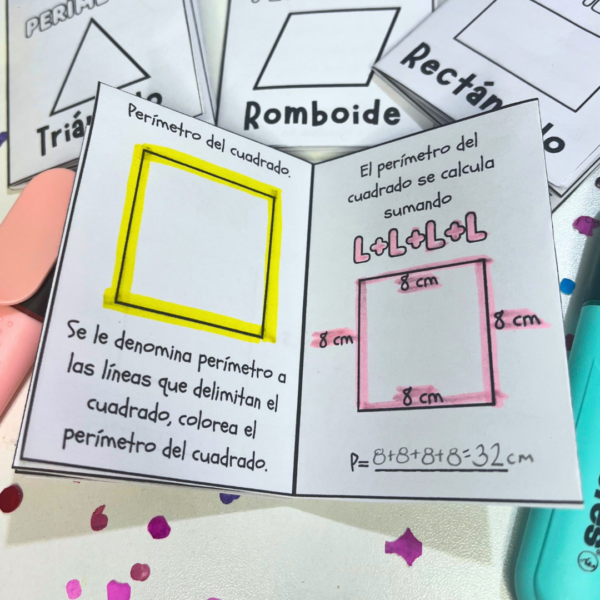 PERÍM
Romboide
Perímetro del cuadrado.
Se le denomina perímetro a
las líneas que delimitan el
cuadrado, colorea el
perímetro del cuadrado.
El perímetro del
cuadrado se calcula
sumando
L+L+L+L
8 cm
8 cm
8 cm
8 cm
P= 8+8+8+8=32cm